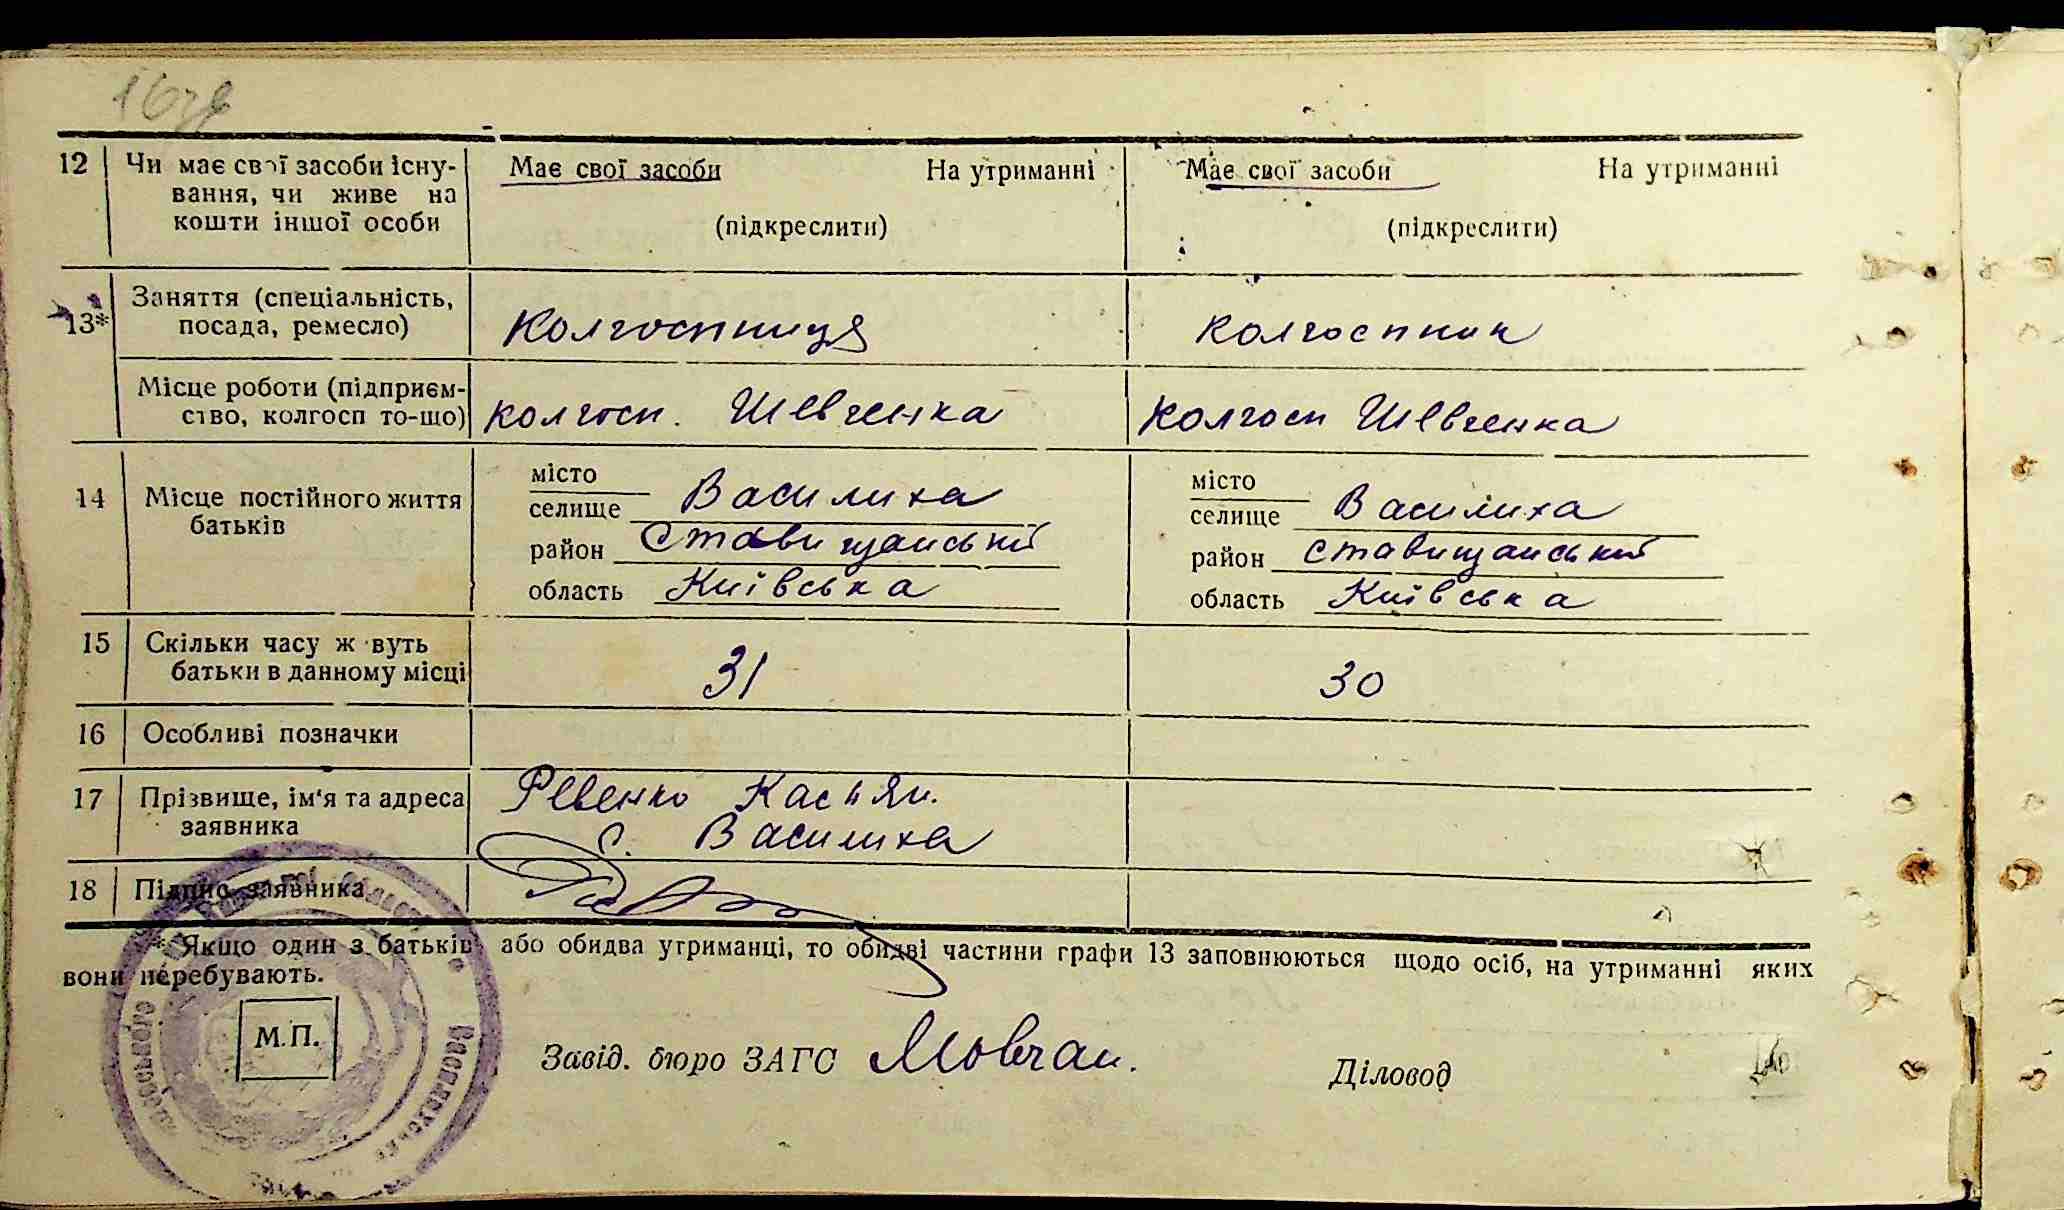 16зв
12 Чи має свої засоби існу- Має свої засоби На утриманні Має свої засоби На утриманні
вання, чи живе на
кошти іншої особи (підкреслити) (підкреслити)
13* Заняття (спеціальність,
посада, ремесло) Колгоспниця колгоспник
Місце роботи (підприєм-
ство, колгосп то-що) колгосп. Шевченка Колгосп Шевченка
місто місто
14 Місце постійного життя селище Василиха селище Василиха
батьків район Ставищанський район Ставищанський
область Київська область Київська
15 Скільки часу ж вуть
батьки в данному місці 31 30
16 Особливі позначки
17 Прізвище, ім'я та адреса Ревенко Касьян.
заявника с. Василиха
18 Підпис заявника
* Якщо один з батьків або обидва утриманці, то обидві частини графи 13 заповнюються щодо осіб, на утриманні яких
вони перебувають.
М.П.
Завід. бюро ЗАГС Мовчан. Діловод